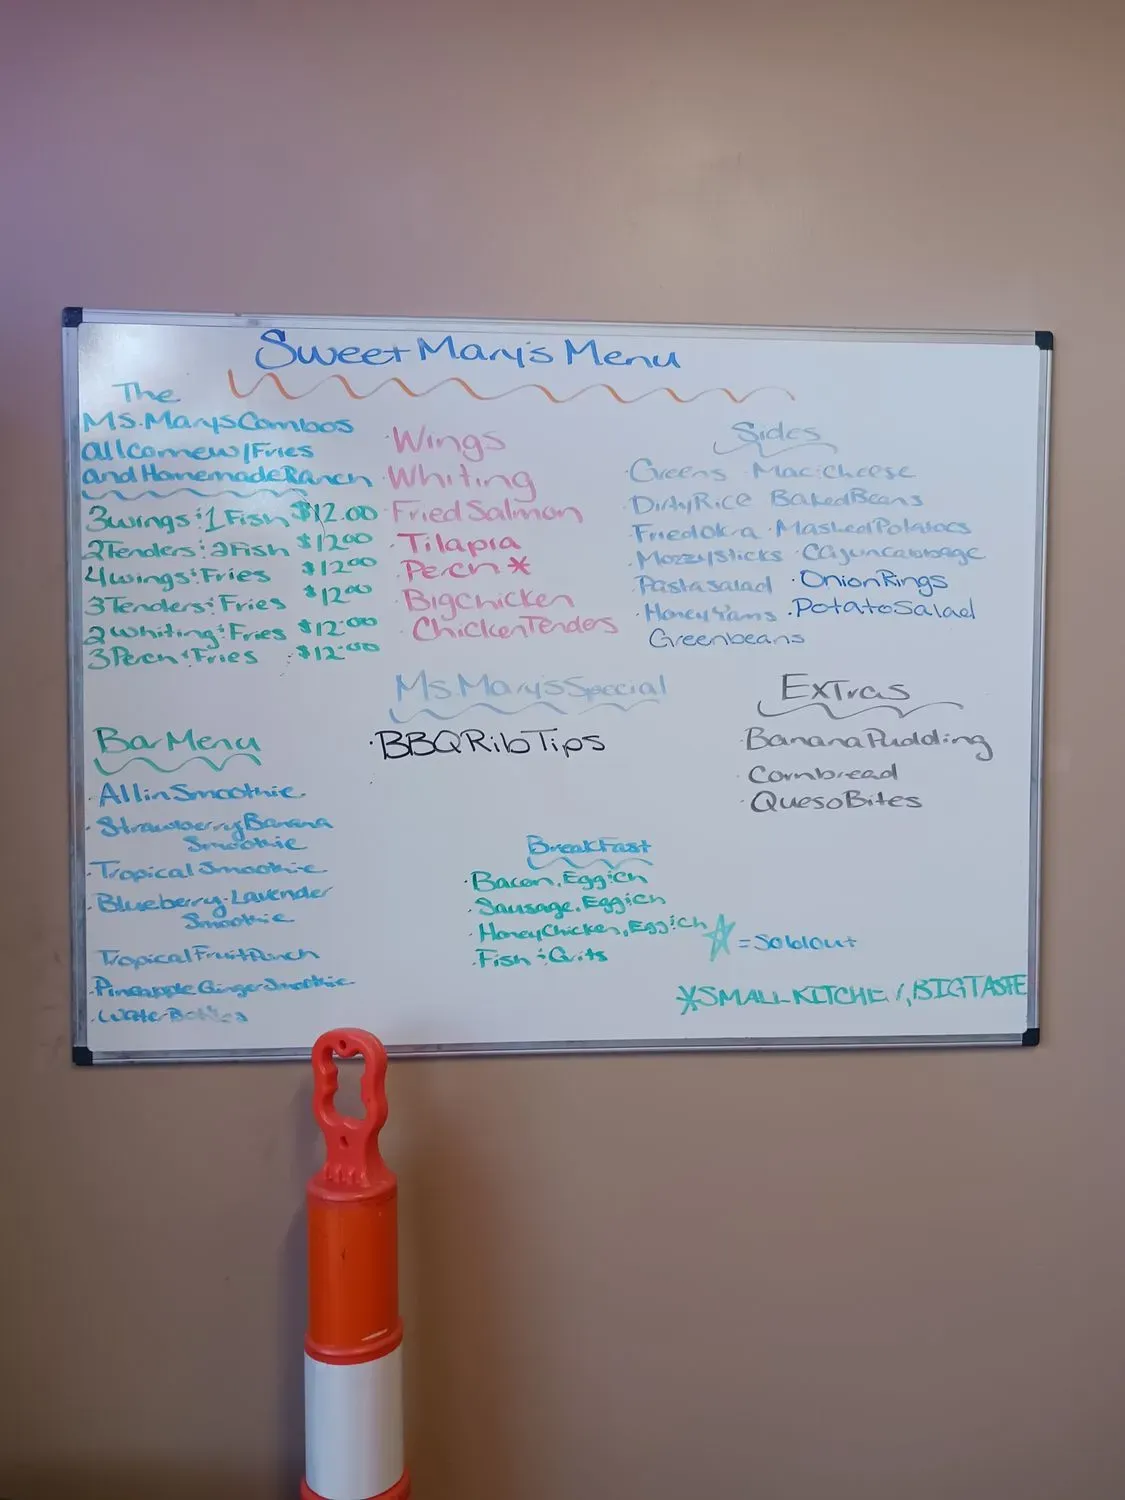 Sweet Mary's Menu
The
Ms. Marys Combos
all come w/ Fries
and Homemade Ranch
3 wings : 1 Fish $12.00
2 Tenders : 2 Fish $12.00
4 wings : Fries $12.00
3 Tenders : Fries $12.00
2 Whiting : Fries $12.00
3 Perch : Fries $12.00
· Wings
· Whiting
· Fried Salmon
· Tilapia
· Perch *
· Big chicken
· Chicken Tenders
Sides
· Greens · Mac : cheese
· Dirty Rice Baked Beans
· Fried Okra · Mashed Potatoes
· Mozzy Sticks · Cajun cabbage
· Pasta salad · Onion Rings
· Honey Yams · Potato Salad
Greenbeans
Ms. Mary's Special
· BBQ Rib Tips
Extras
· Banana Pudding
· Cornbread
· Queso Bites
Bar Menu
· All in Smoothie
· Strawberry Banana
Smoothie
· Tropical Smoothie
· Blueberry · Lavender
Smoothie
· Tropical Fruit Punch
· Pineapple Ginger Smoothie
· Water Bottles
Breakfast
· Bacon, Egg : ch
· Sausage, Egg : ch
· Honey Chicken, Egg : ch
· Fish : Grits
☆ = Sold out
*SMALL KITCHEN, BIG TASTE